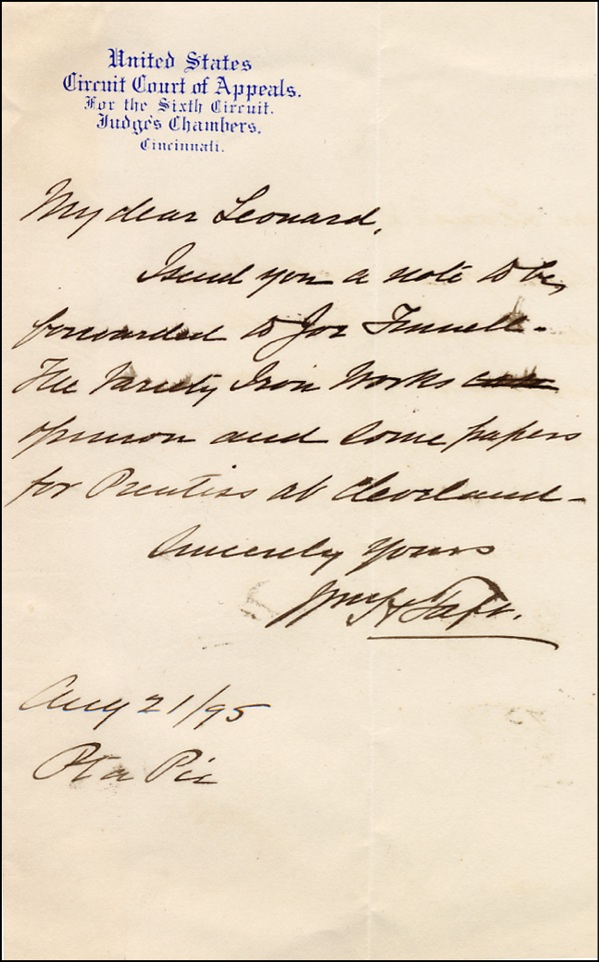 United States
Circuit Court of Appeals.
For the Sixth Circuit.
Judge's Chambers,
Cincinnati.
My dear Leonard,
I send you a note to be
forwarded to Joe
The Variety Iron Works
opinion and some papers
for Prentiss at Cleveland -
Sincerely Yours
Wm H Taft.
Aug 21/95
Pt a Pic